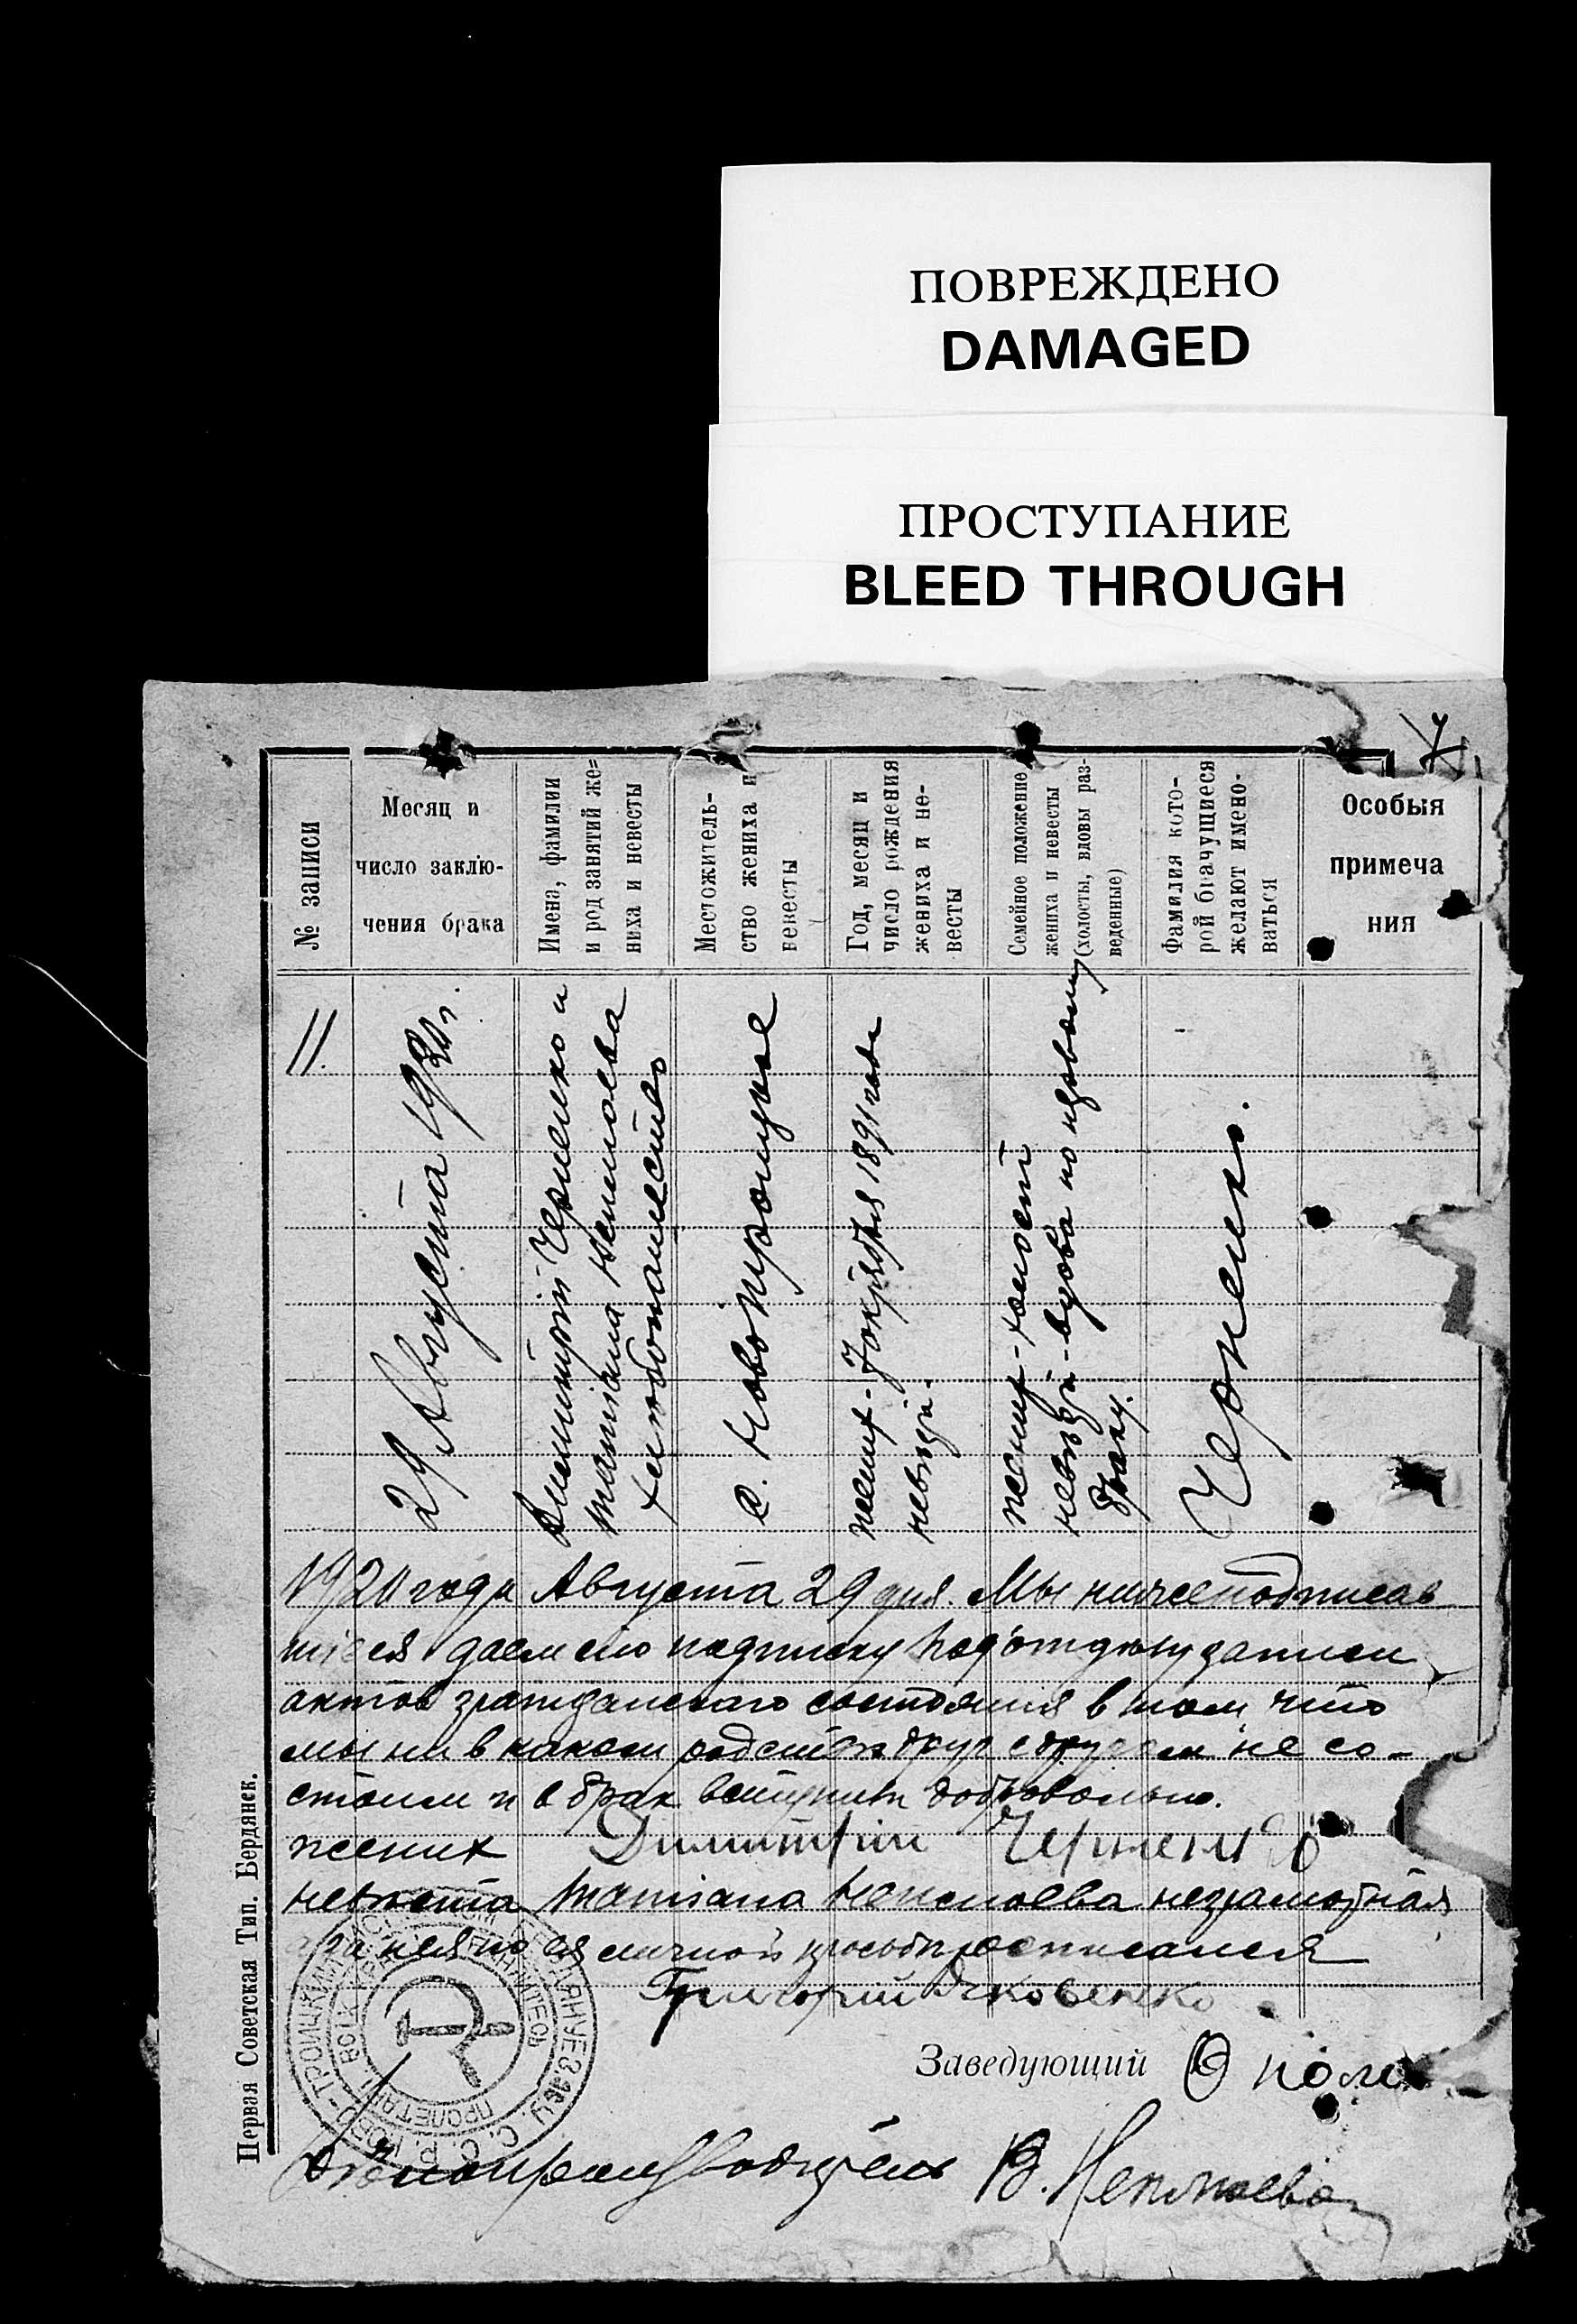 ПОВРЕЖДЕНО
DAMAGED
ПРОСТУПАНИЕ
BLEED THROUGH
№ записи
Месяц и
число заклю-
чения брака
Имена, фамилии
и род занятий же=
ниха и невесты
Местожитель-
ство жениха и
невесты
Год, месяц и
число рождения
жениха и не-
весты
Семейное положение
жениха и невесты
(холосты, вдовы раз-
веденные)
Фамилия кото-
рой брачущиеся
желают имено-
ваться
Особыя
примеча
ния
11.
29 Августа 1920 г.
Димитрий Черненко и
Татиана
хлебопашество
с. Новотроицкое
жених - 1891 года
жених - холост
вдова по
браку.
Черненко.
1920 года Августа 29 дня. Мы нижеподписав
шіеся даем сію подписку записи
актов гражданского состояния в том что
мы ни в каком родстве друг с другом не со-
стоим и в брак вступили добровольно.
жених Димитрий Черненко
невеста Татиана неграмотная
а за нея по ея личной просьбе росписался
Григорий Яковенко
Заведующий
Делопроизводитель В.
Первая Советская Тип. Бердянск.